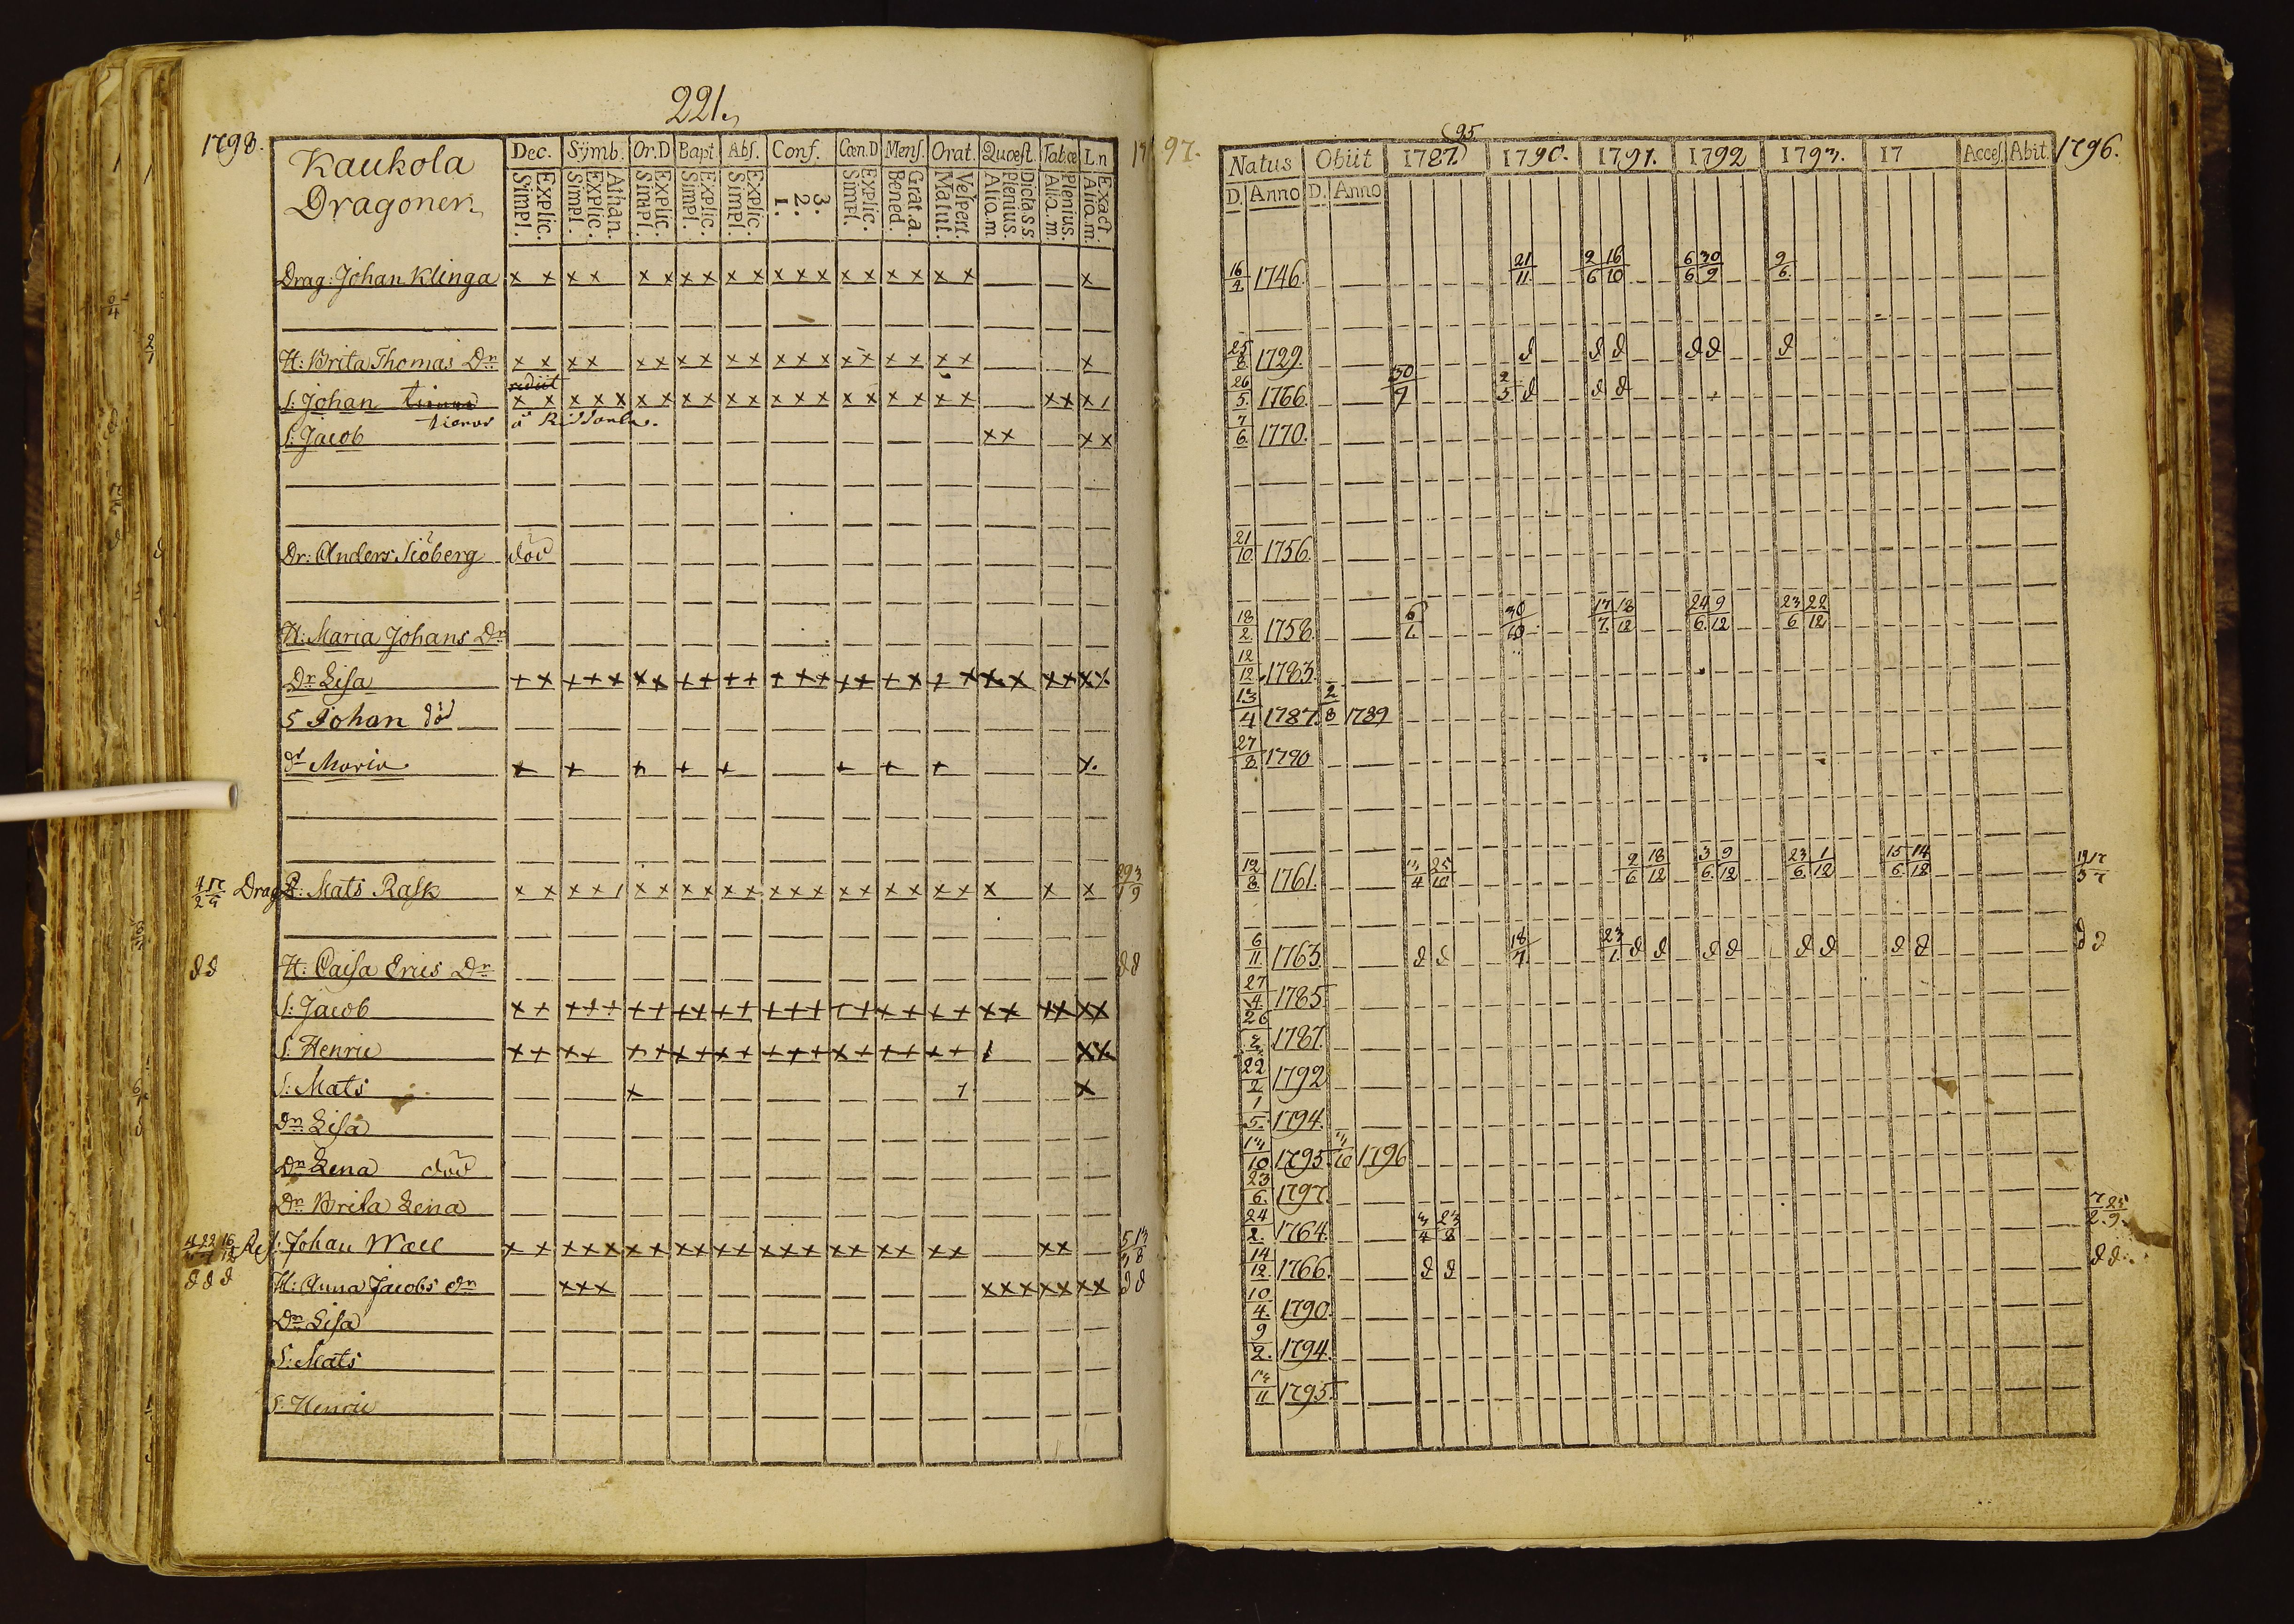 221.
1798.
Kaukola
Dragoner
Dec. Symb. Or.D Bapt. Abs. Conf. Cœn.D Mens. Orat. Quœst. Tab.œ L.n
Simpl. Explic. Simpl. Explic. Athan. Simpl. Explic. Simpl. Explic. Simpl. Explic. 1. 2. 3. Simpl. Explic. Bened. Grat.a. Matut. Vespert. Alio.m Plenius. Dicta s.s. Alio.m. Plenius. Alio.m. Exact
Drag: Johan Klinga x x x x x x x x x x x x x x x x x x x x
H: Brita Thomas Dr x x x x x x x x x x x x x x x x x x x x
rediit
S: Johan tienar x x x x x x x x x x x x x x x x x x x x x x x x
tienar å
S: Jacob x x x x
Dr: Anders Siöberg död
H: Maria Johans Dr
Dr Lisa x x x x x x x x x x x x x x x x x x x x x x x x x x
S Johan död
dr Maria x x x x x x x x x
Drag R: Mats Rask x x x x x x x x x x x x x x x x x x x x x x x
dd H: Caisa Erics Dr dd
S: Jacob x x x x x x x x x x x x x x x x x x x x x x x x x x
S: Henric x x x x x x x x x x x x x x x x x x x x x x
S: Mats x x
Dr Lisa
Dr Lena död
Dr Brita Lena
S: Johan Wall x x x x x x x x x x x x x x x x x x x x x x
ddd H: Anna Jacobs dr x x x x x x x x x x dd
Dr Lisa
S: Mats
S: Henric
1797.
95
Natus Obiit 1787. 1790. 1791. 1792 1793. 17 Acces. Abit. 1796.
D. Anno D. Anno
16/2 1746. 21/11. 2/6 16/10 6/6 30/9 9/6.
25/8 1729. d d d d d d
26/5 1766. 30/7 2/5 d d d
7/6 1770.
21/10 1756.
18/2 1758. 6/1. 30/10 17/7. 18/12 24/6. 9/12 23/6 22/12
12/12 1783.
13/4 1787. 2/8 1789
27/8 1790
12/8 1761. 3/4 25/10 2/6 18/12 3/6 9/12 23/6 1/12 15/6 14/12
6/11 1763. d d 18/7 23/1 d d d d d d d d d d
27/4 1785.
26/2 1787.
22/2 1792
1/5 1794.
13/10 1795. 3/10 1796
23/6. 1797.
24/2. 1764. 3/4 23/8 7/2. 25/9.
14/12. 1766. d d dd
10/4. 1790.
9/2. 1794.
13/11 1795.